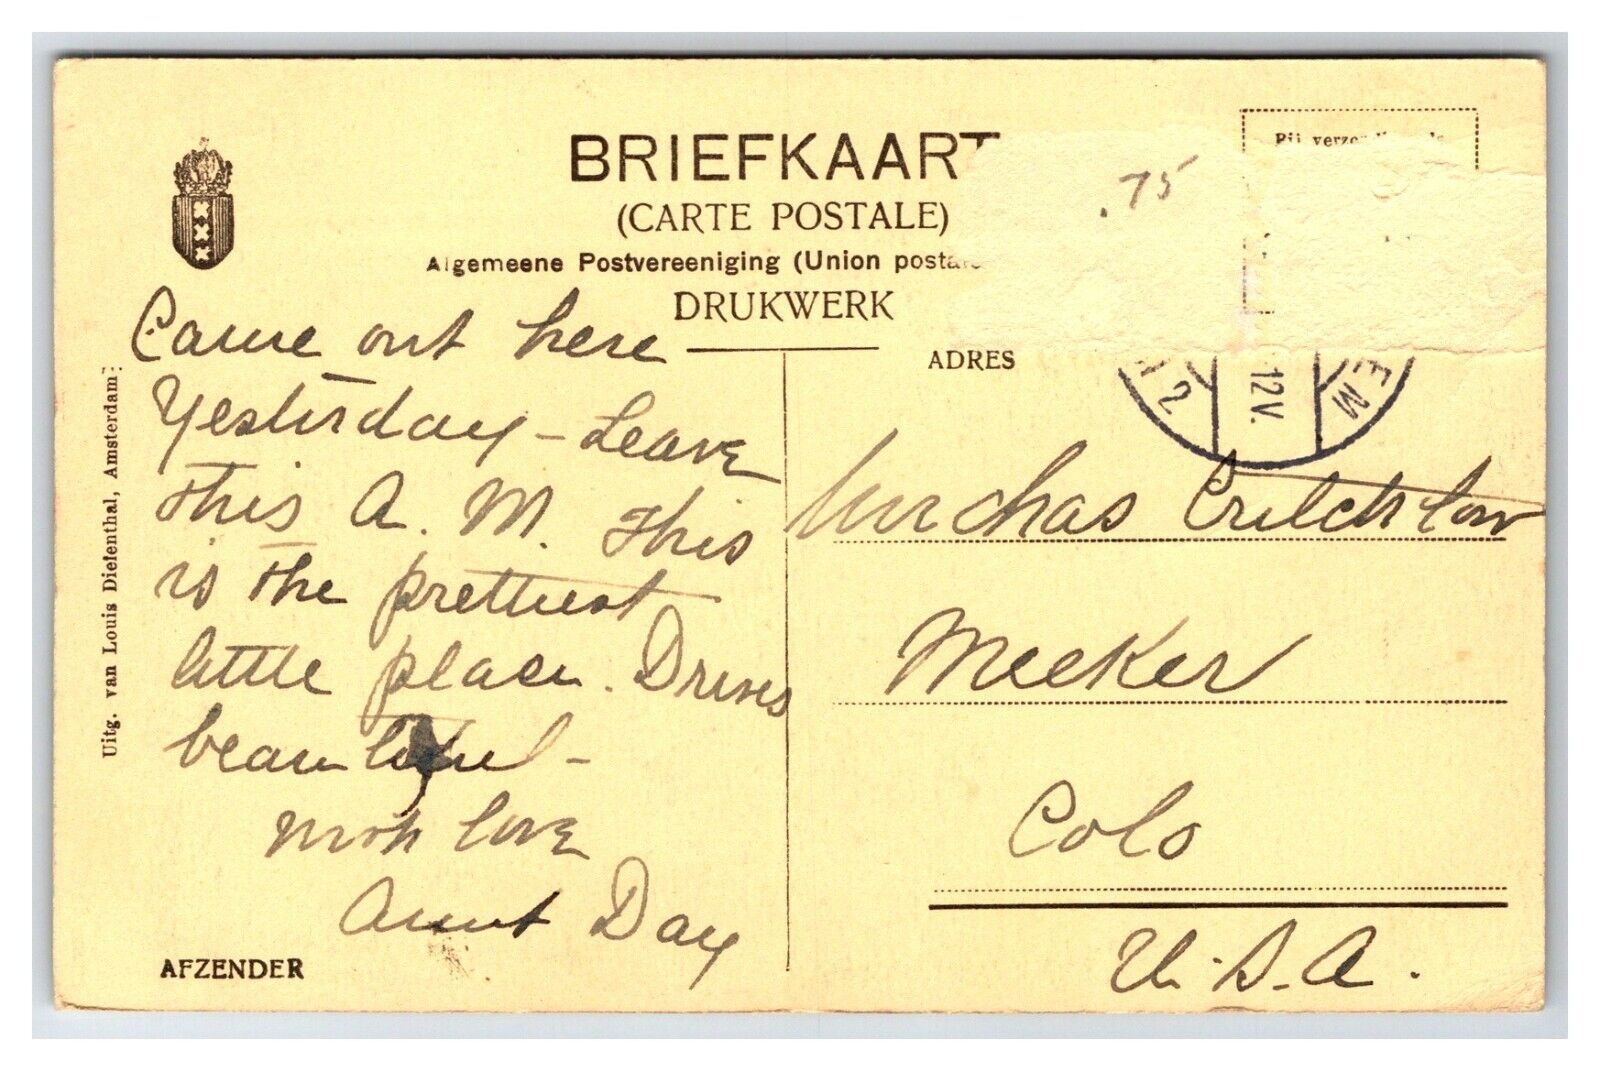 BRIEFKAART
(CARTE POSTALE)
Algemeene Postvereeniging (Union
DRUKWERK
Bij
.75
Came out here
Yesterday - Leave
this A. M. This
is the prettiest
little place. Drives
beautiful -
much love
Aunt Day
AFZENDER
Uitg. van Louis Diefenthal, Amsterdam:
ADRES
12V.
2
EM
Mrs Chas Critchlow
Meeker
Colo
U.S.A.